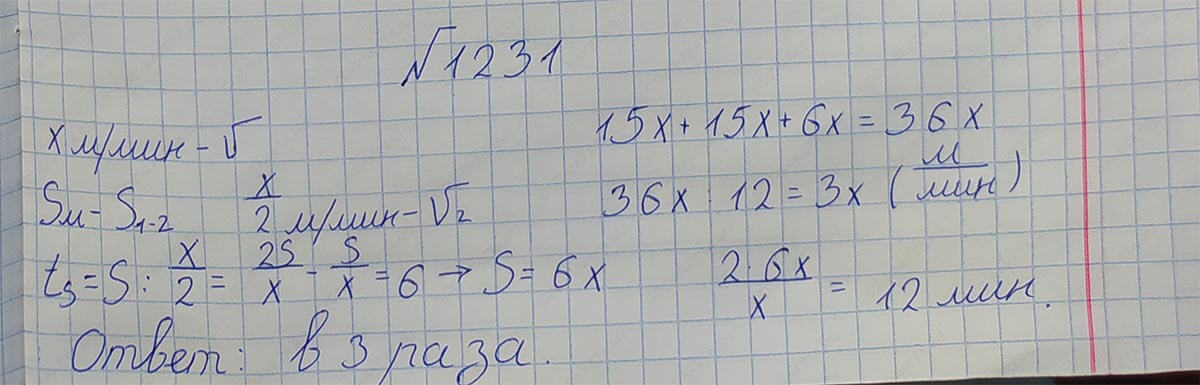 √1231
x м/мин - √
Sм - S₁₋₂ x/2 м/мин - √₂
t₅ = S : x/2 = 2S/x - S/x = 6 → S = 6x
15x + 15x + 6x = 36x
36x : 12 = 3x (м/мин)
2·6x/x = 12 мин.
Ответ: в 3 раза.